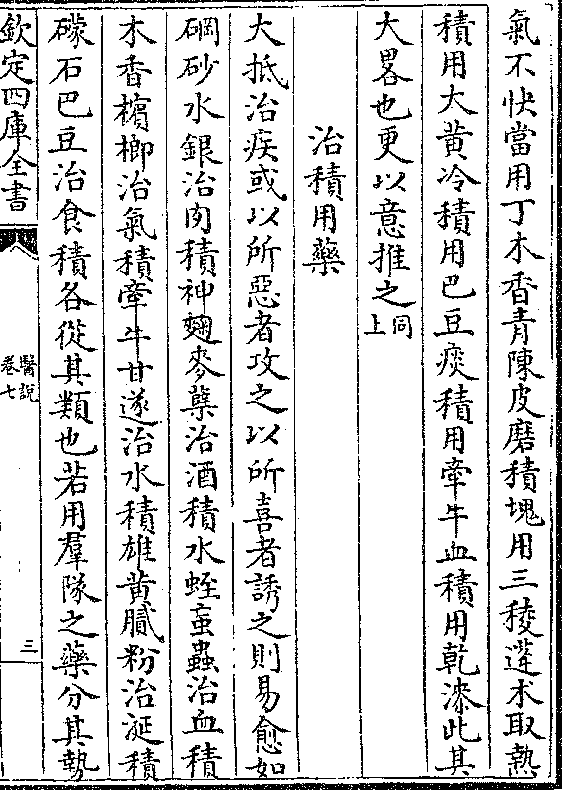 氣不快當用丁木香青陳皮磨積塊用三稜蓬朮取熱
積用大黄冷積用巴豆痰積用牽牛血積用乾漆此其
大畧也更以意推之同上
治積用藥
大抵治疾或以所惡者攻之以所喜者誘之則易愈如
硇砂水銀治肉積神麴麥糵治酒積水蛭䖟蟲治血積
木香檳榔治氣積牽牛甘遂治水積雄黄膩粉治涎積
礞石巴豆治食積各從其類也若用羣隊之藥分其勢
欽定四庫全書
醫說
卷七
三